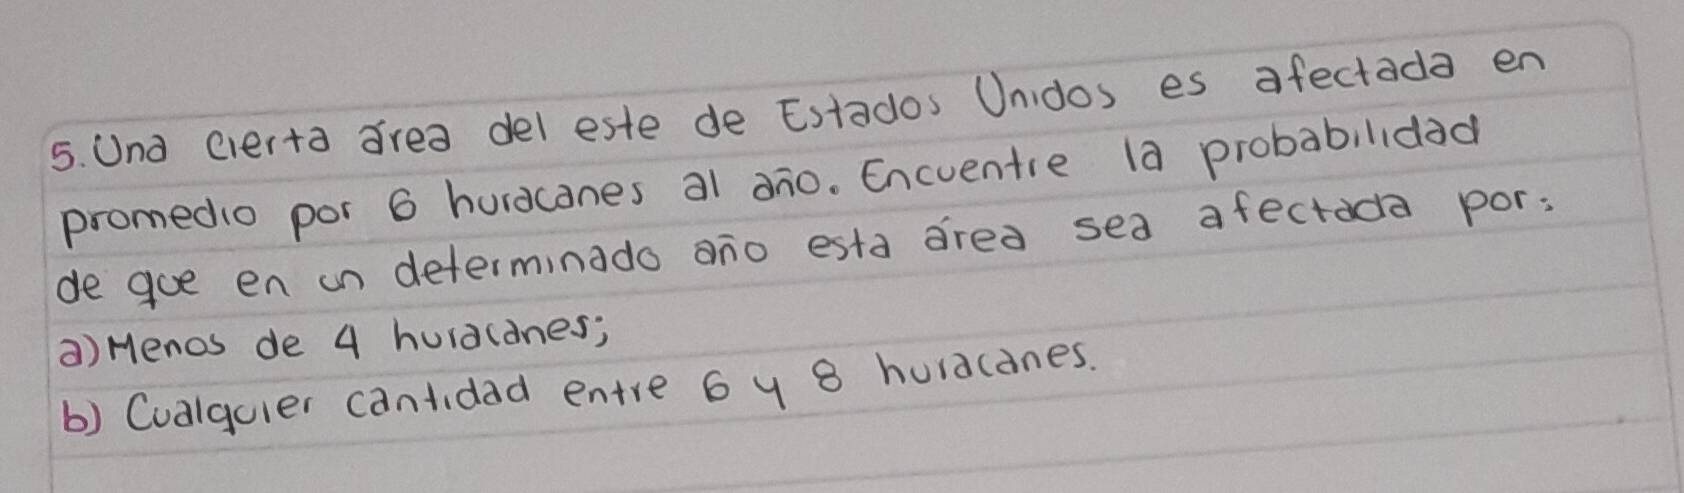 5. Una cierta área del este de Estados Unidos es afectada en
promedio por 6 huracanes al año. Encuentre la probabilidad
de que en un determinado año esta área sea afectada por:
a) Menos de 4 huracanes;
b) Cualquier cantidad entre 6 y 8 huracanes.